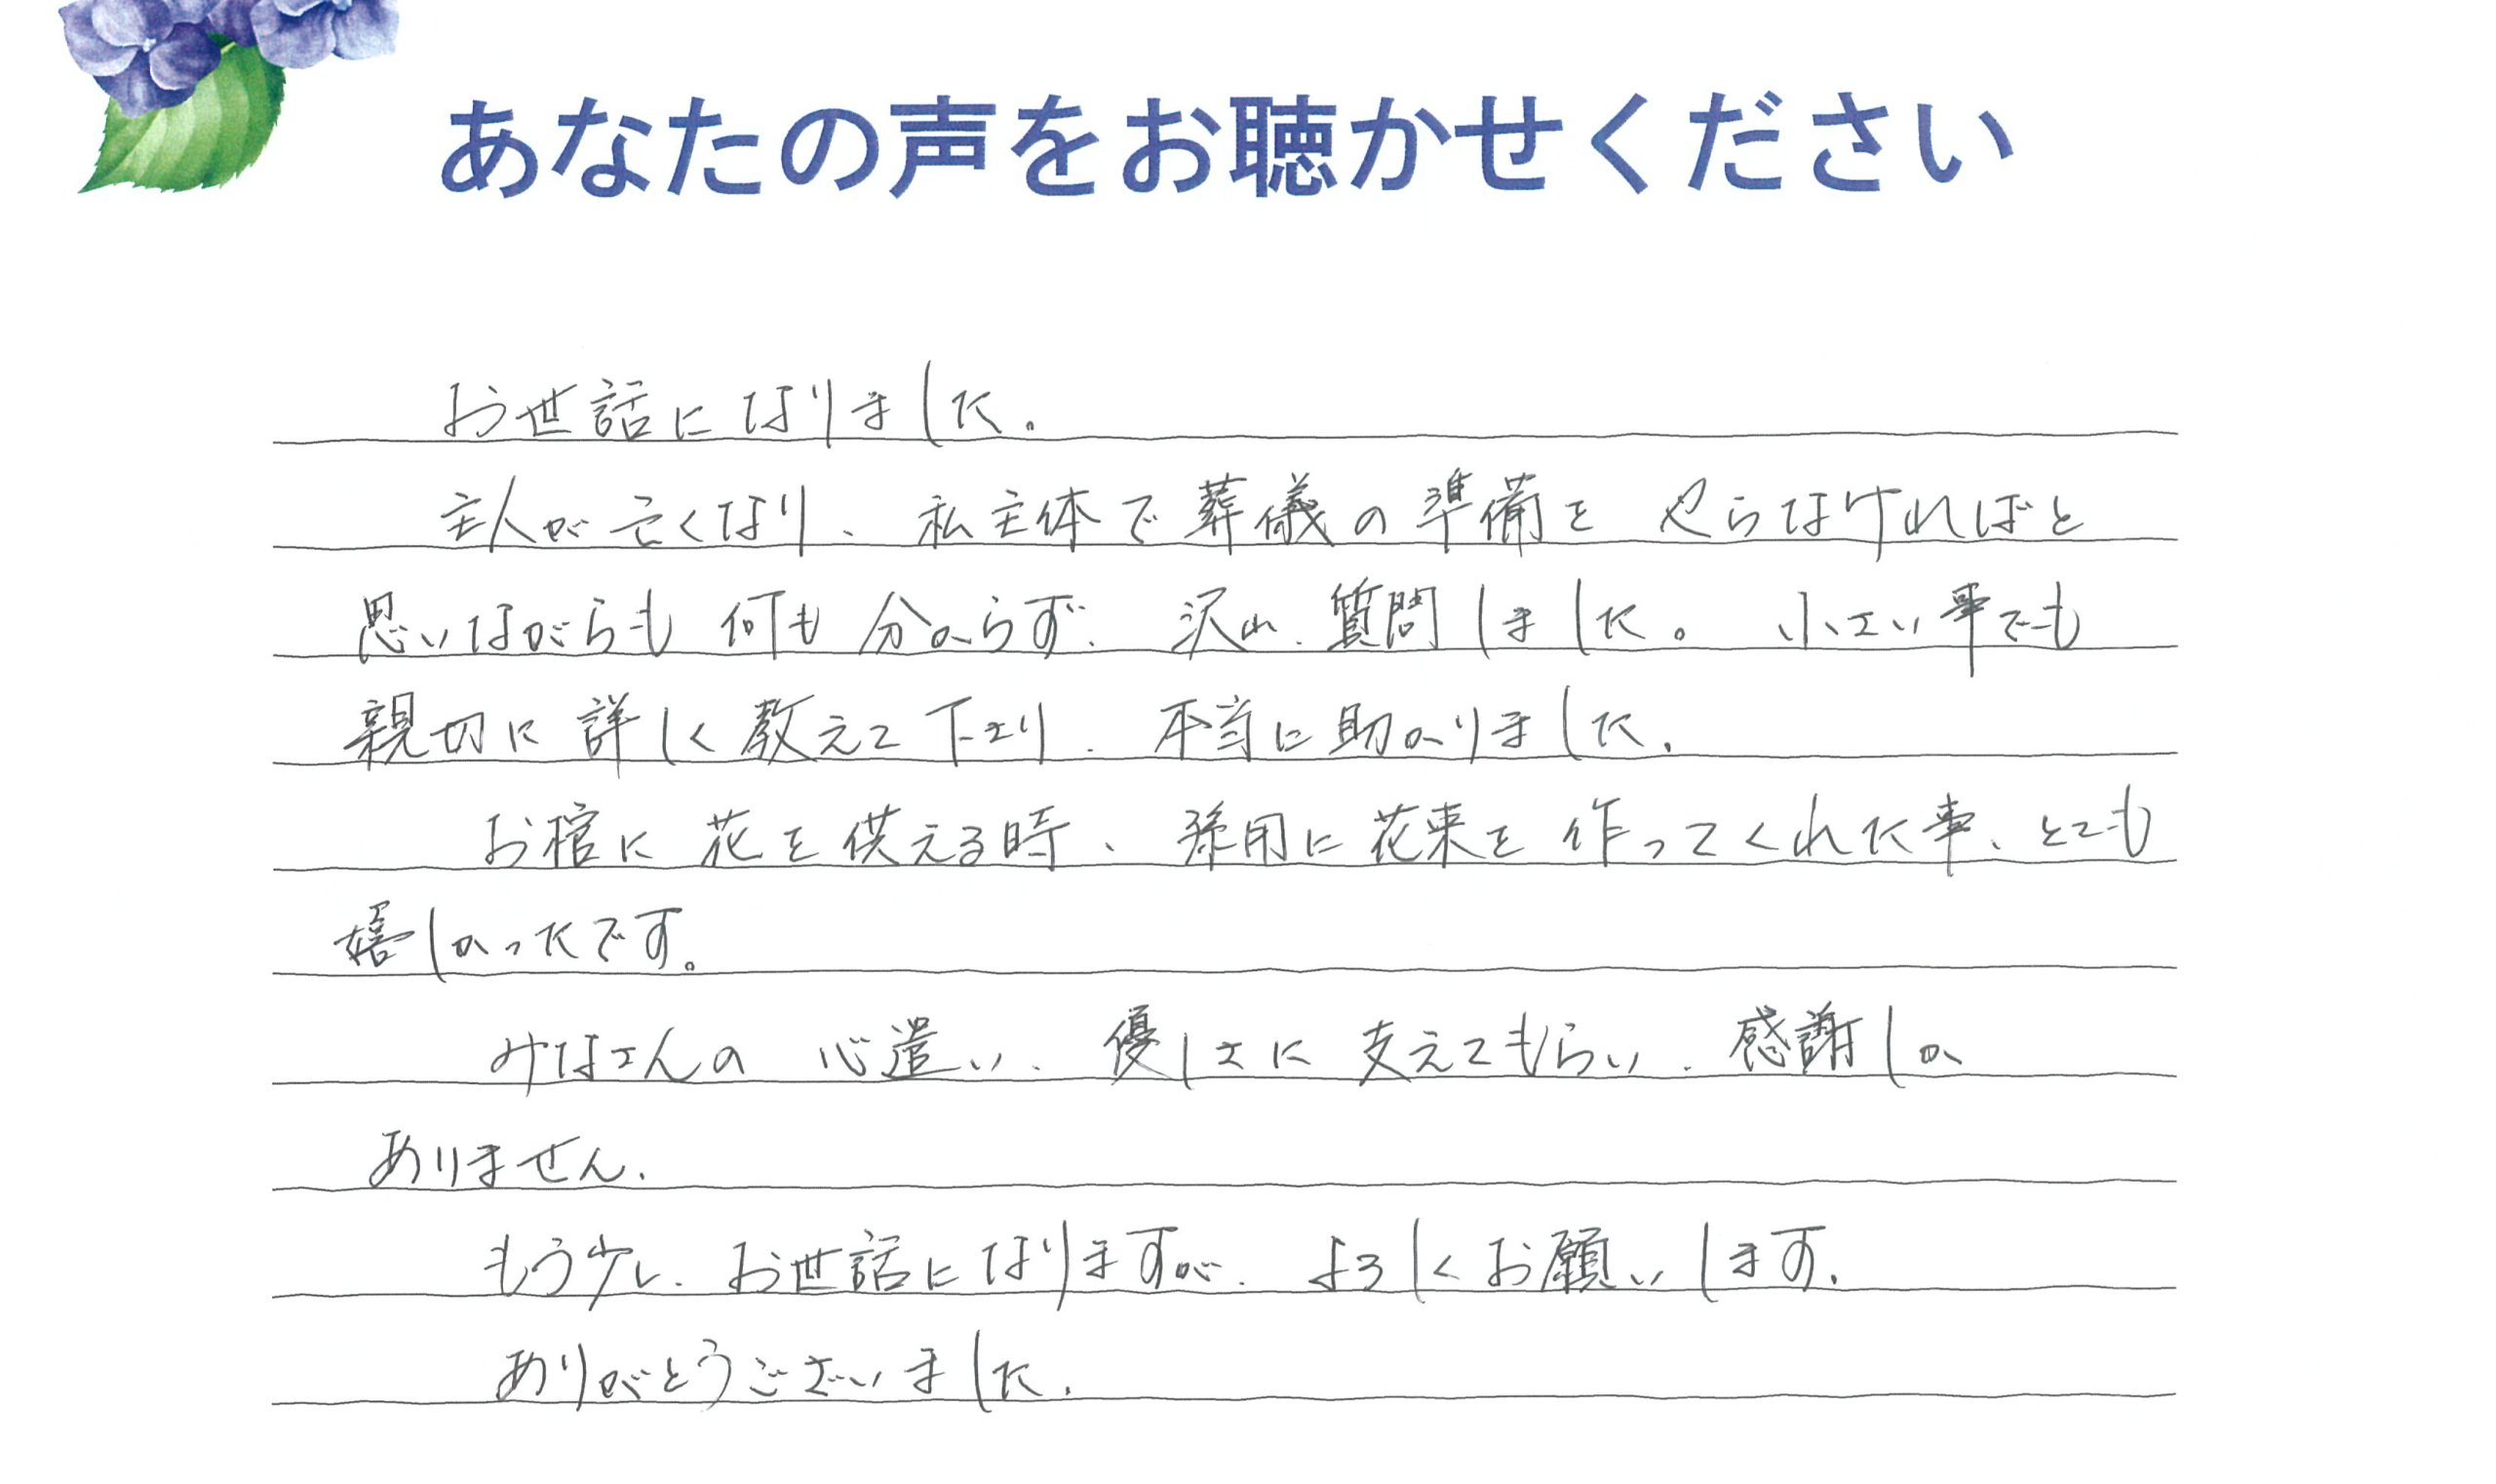 あなたの声をお聴かせください
お世話になりました。
主人が亡くなり、私主体で葬儀の準備を やらなければと
思いながらも 何も 分からず、沢山、質問しました。 小さい事でも
親切に 詳しく 教えて下さり、本当に助かりました。
お棺に 花を供える時、孫用に花束を 作ってくれた事、とても
嬉しかったです。
みなさんの 心遣い、優しさに 支えてもらい、感謝しか
ありません。
もう少し、お世話になりますが、よろしくお願いします。
ありがとうございました。